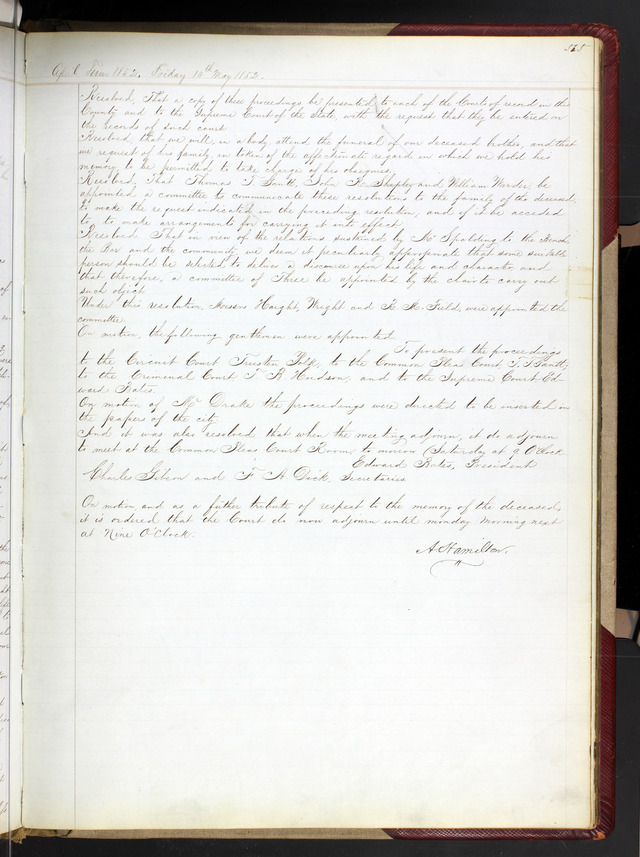 515
April Term 1852. Friday 14th May 1852.
Resolved, That a copy of these proceedings be presented to each of the Courts of record in this
County and to the Supreme Court of the State, with the request that they be entered on
the records of such court
Resolved, that we will, in a body, attend the funeral of our deceased brother, and that
we request of his family, in token of the affectionate regard in which we hold his
memory, to be permitted to take charge of his obsequies.
Resolved, That Thomas T. Gantt, John R. Shepley and William Weirder, be
appointed a committee to communicate these resolutions to the family of the deceased,
to make the request indicated in the preceding resolution, and if it be acceded
to, to make arrangements for carrying it into effect
Resolved, That in view of the relations sustained by Mr Spalding to the Bench,
the Bar and the community, we deem it peculiarly appropriate that some suitable
person should be selected to deliver a discourse upon his life and character, and
that therefore, a committee of Three be appointed by the chair to carry out
such object
Under this resolution, Messrs Haight, Wright and R. M. Field, were appointed the
committee
On motion, the following gentlemen were appointed
To present the proceedings
to the Circuit Court Trusten Polk, to the Common Pleas Court, T. T. Gantt,
to the Criminal Court T B Hudson, and to the Supreme Court Ed-
ward Bates.
On motion of Mr Drake the proceedings were directed to be inserted in
the papers of the city
And it was also resolved that when the meeting adjourn, it do adjourn
to meet at the Common Pleas Court Room to morrow Saturday at 9 O'Clock
Edward Bates, President
Charles Gibson and F. A Dick, Secretaries
On motion and as a futher tribute of respect to the memory of the deceased,
it is ordered that the Court do now adjourn until monday morning next
at Nine O'Clock.
A Hamilton.